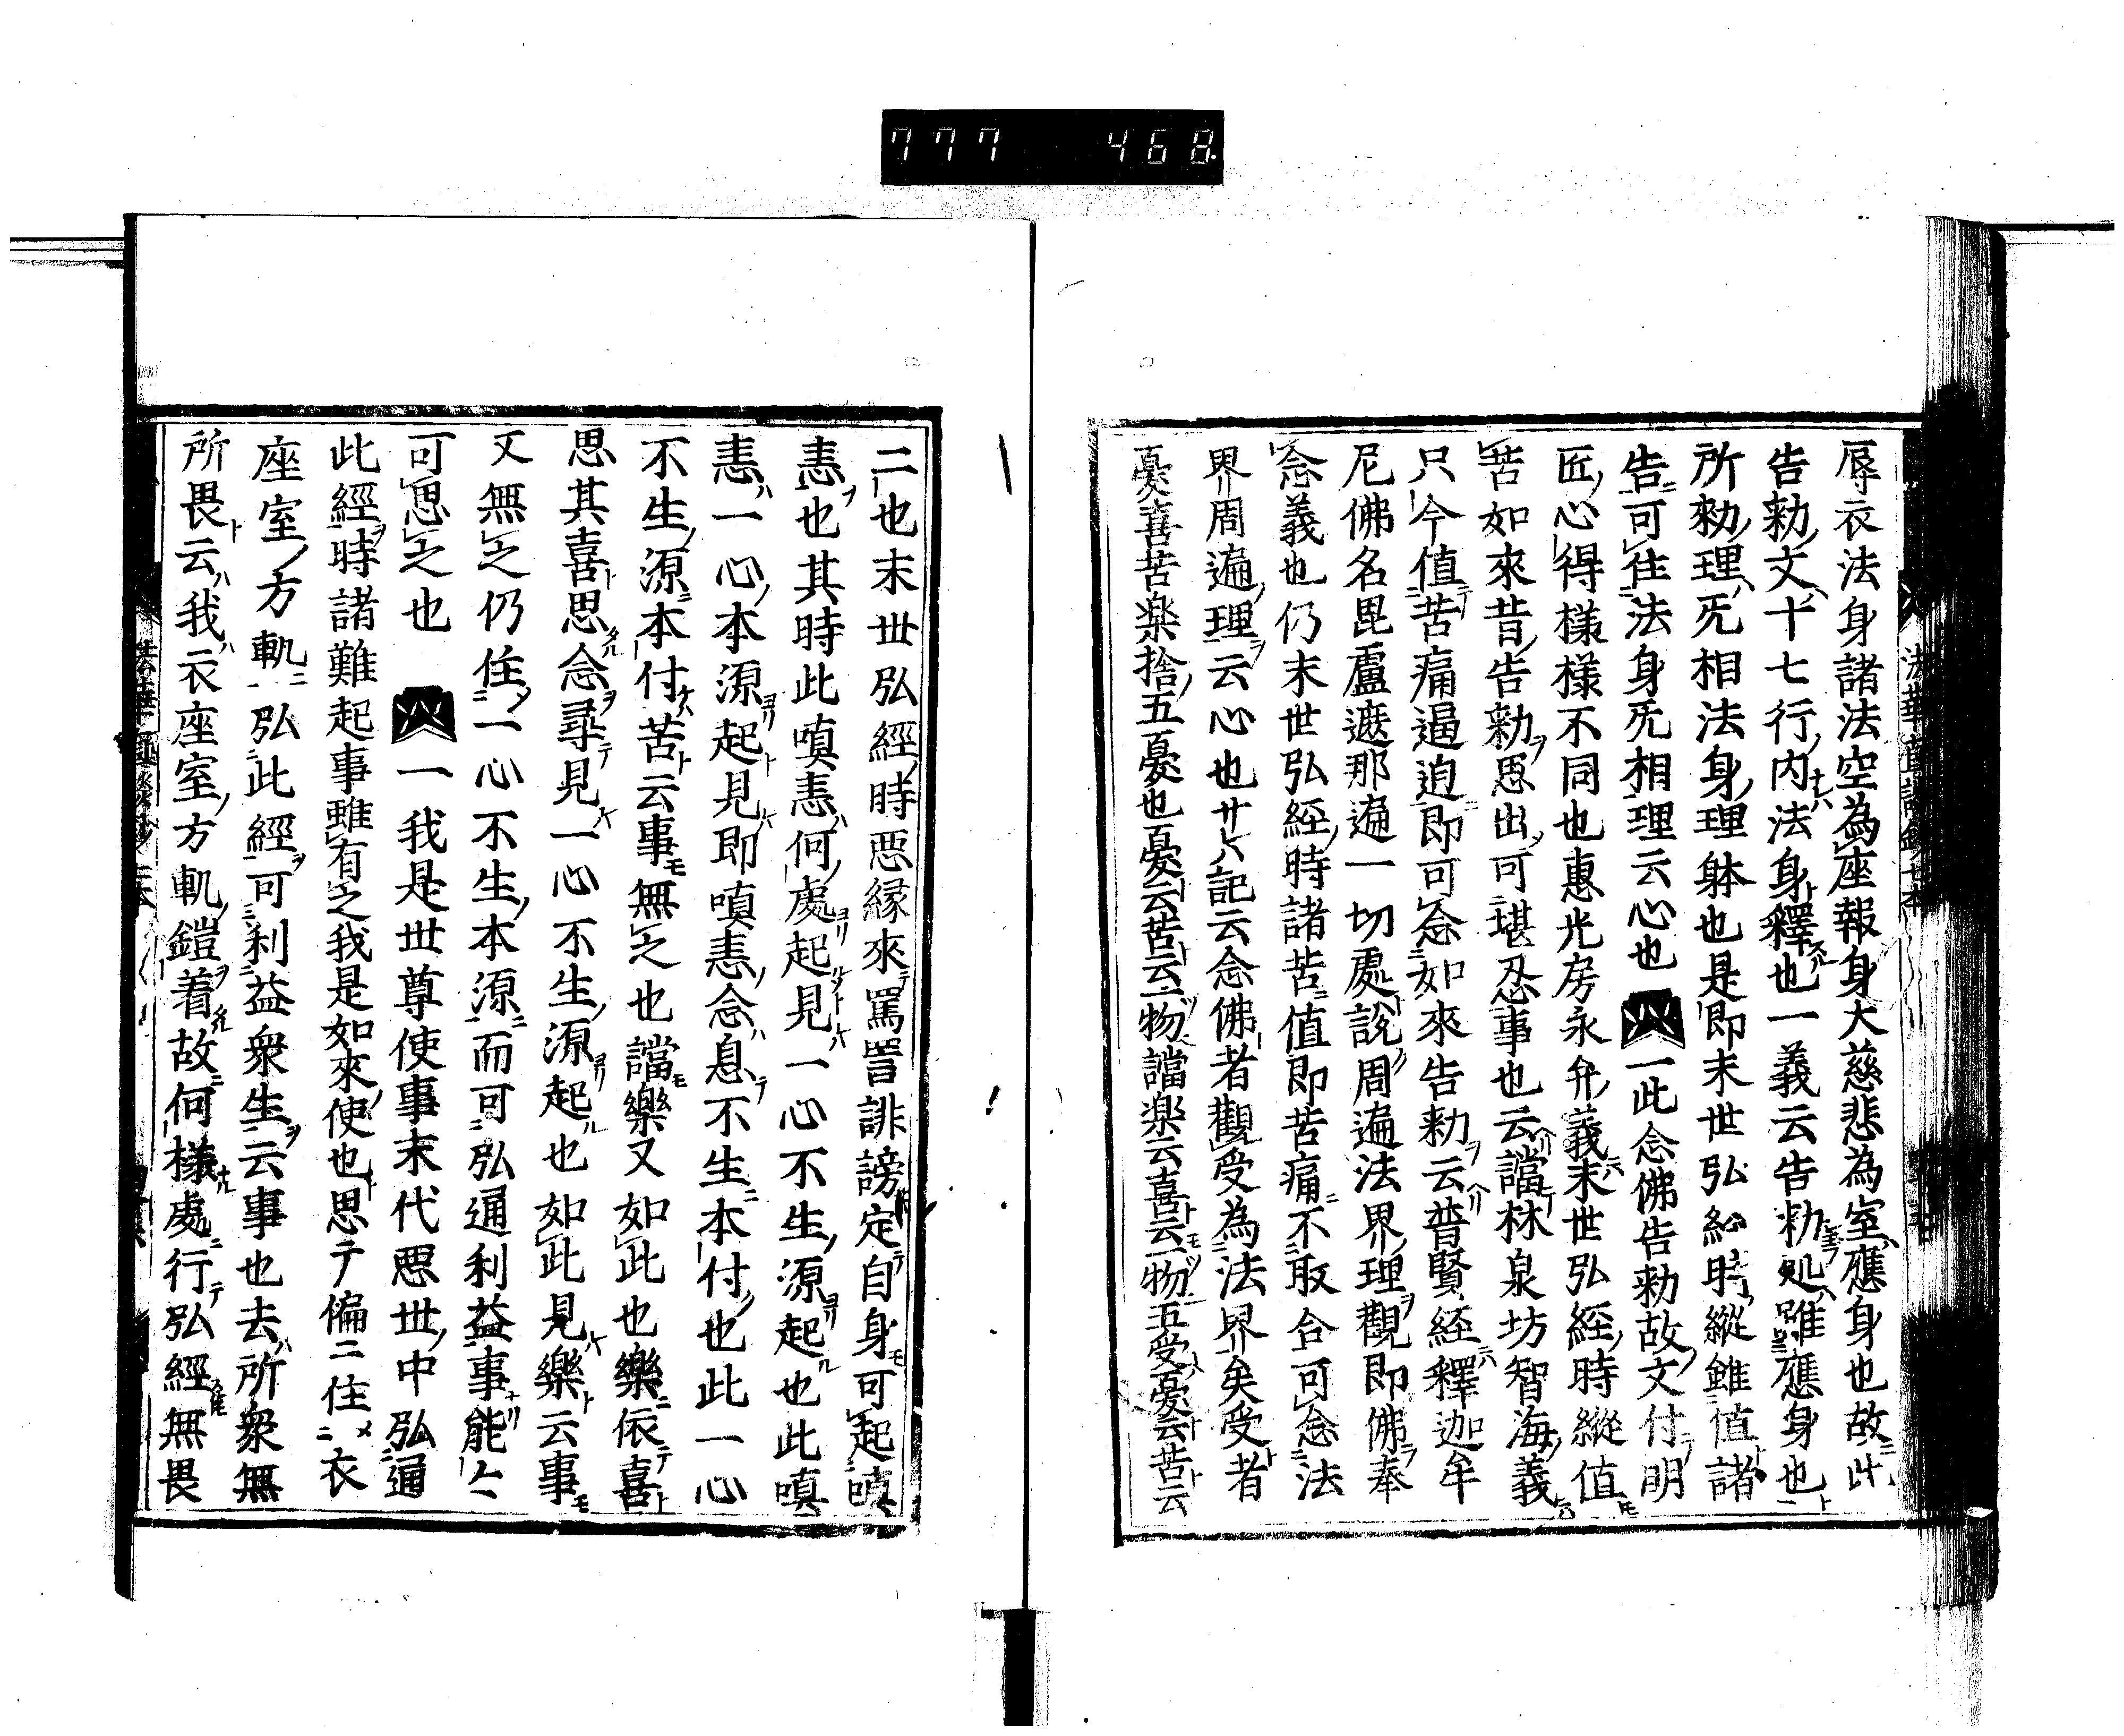 777 468
辱衣法身諸法空為座報身大慈悲為室應身也故此
告勅文十七行内法身釋也一義云告勅処雖應身也
所勅理旡相法身理躰也是即末世弘経時縱雖値諸
告可住法身旡相理云心也 一此念佛告勅故文付明
匠心得様様不同也惠光房永弁義末世弘經時縱値
苦如來昔告勅思出可堪忍事也云檔林泉坊智海義
只今値苦痛逼迫即可念如來告勅云普賢経釋迦牟
尼佛名毘盧遮那遍一切處說周遍法界理觀即佛奉
念義也仍末世弘經時諸苦値即苦痛不取合可念法
界周遍理云心也廿八記云念佛者觀受為法界矣受者
憂喜苦楽捨五憂也憂云苦云一物檔楽云喜云一物五受憂云苦云
二也末世弘經時惡縁來罵詈誹謗定自身可起嗔
恚也其時此嗔恚何處起見一心不生源起也此嗔
恚一心本源起見即嗔恚念息不生本付也此一心
不生源本付苦云事無之也檔樂又如此也樂依喜
思其喜思念尋見一心不生源起也如此見樂云事
又無之仍住一心不生本源而可弘通利益事能々
可思之也 一我是世尊使事末代惡世中弘通
此經時諸難起事雖有之我是如來使也思テ偏ニ住衣
座室方軌弘此經可利益衆生云事也去所衆無
所畏云我衣座室方軌鎧着故何様處行弘經無畏